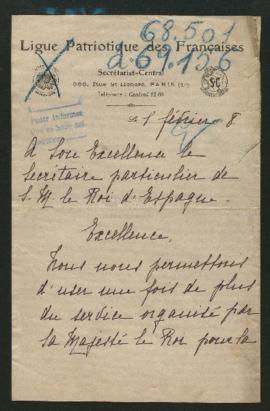 68.501
269.156
Ligue Patriotique des Françaises
Secrétariat-Central
368, Rue St Honoré, PARIS (1er)
Téléphone : Central
février 8
A Son Excellence le
Secrétaire particulier de
S. M. le Roi d'Espagne.
Excellence,
Nous nous permettons
d'user une fois de plus
du service organisé par
sa Majesté le Roi pour la